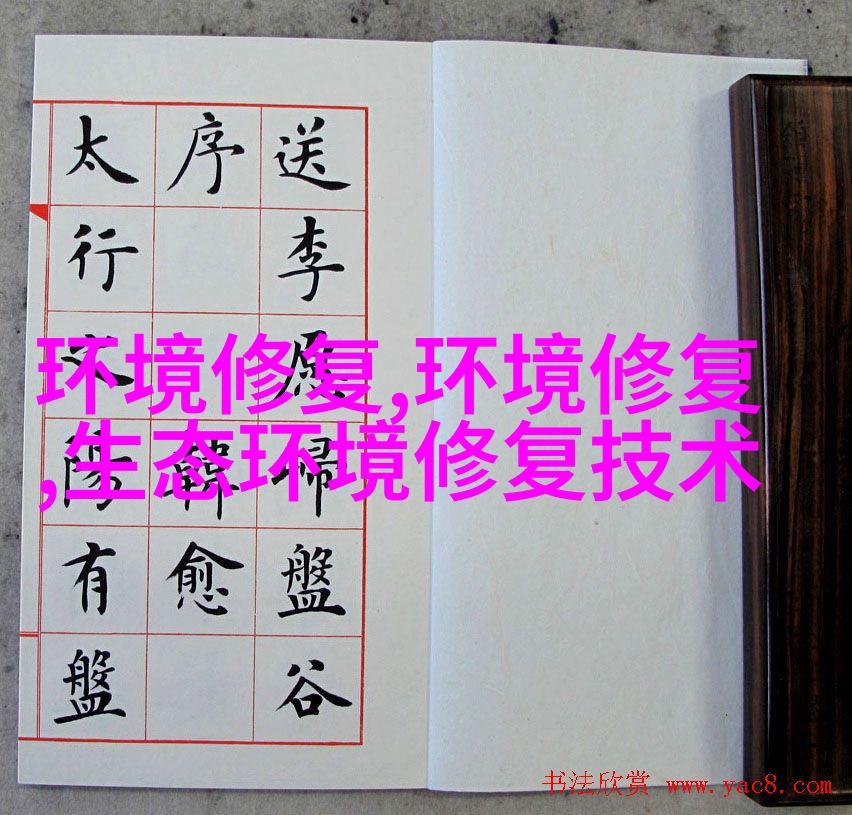 送李愿歸盤谷
序 韓愈
太行之陽有盤
环境修复,环境修复
,生态环境修复技术
书法欣赏 www.yac8.com